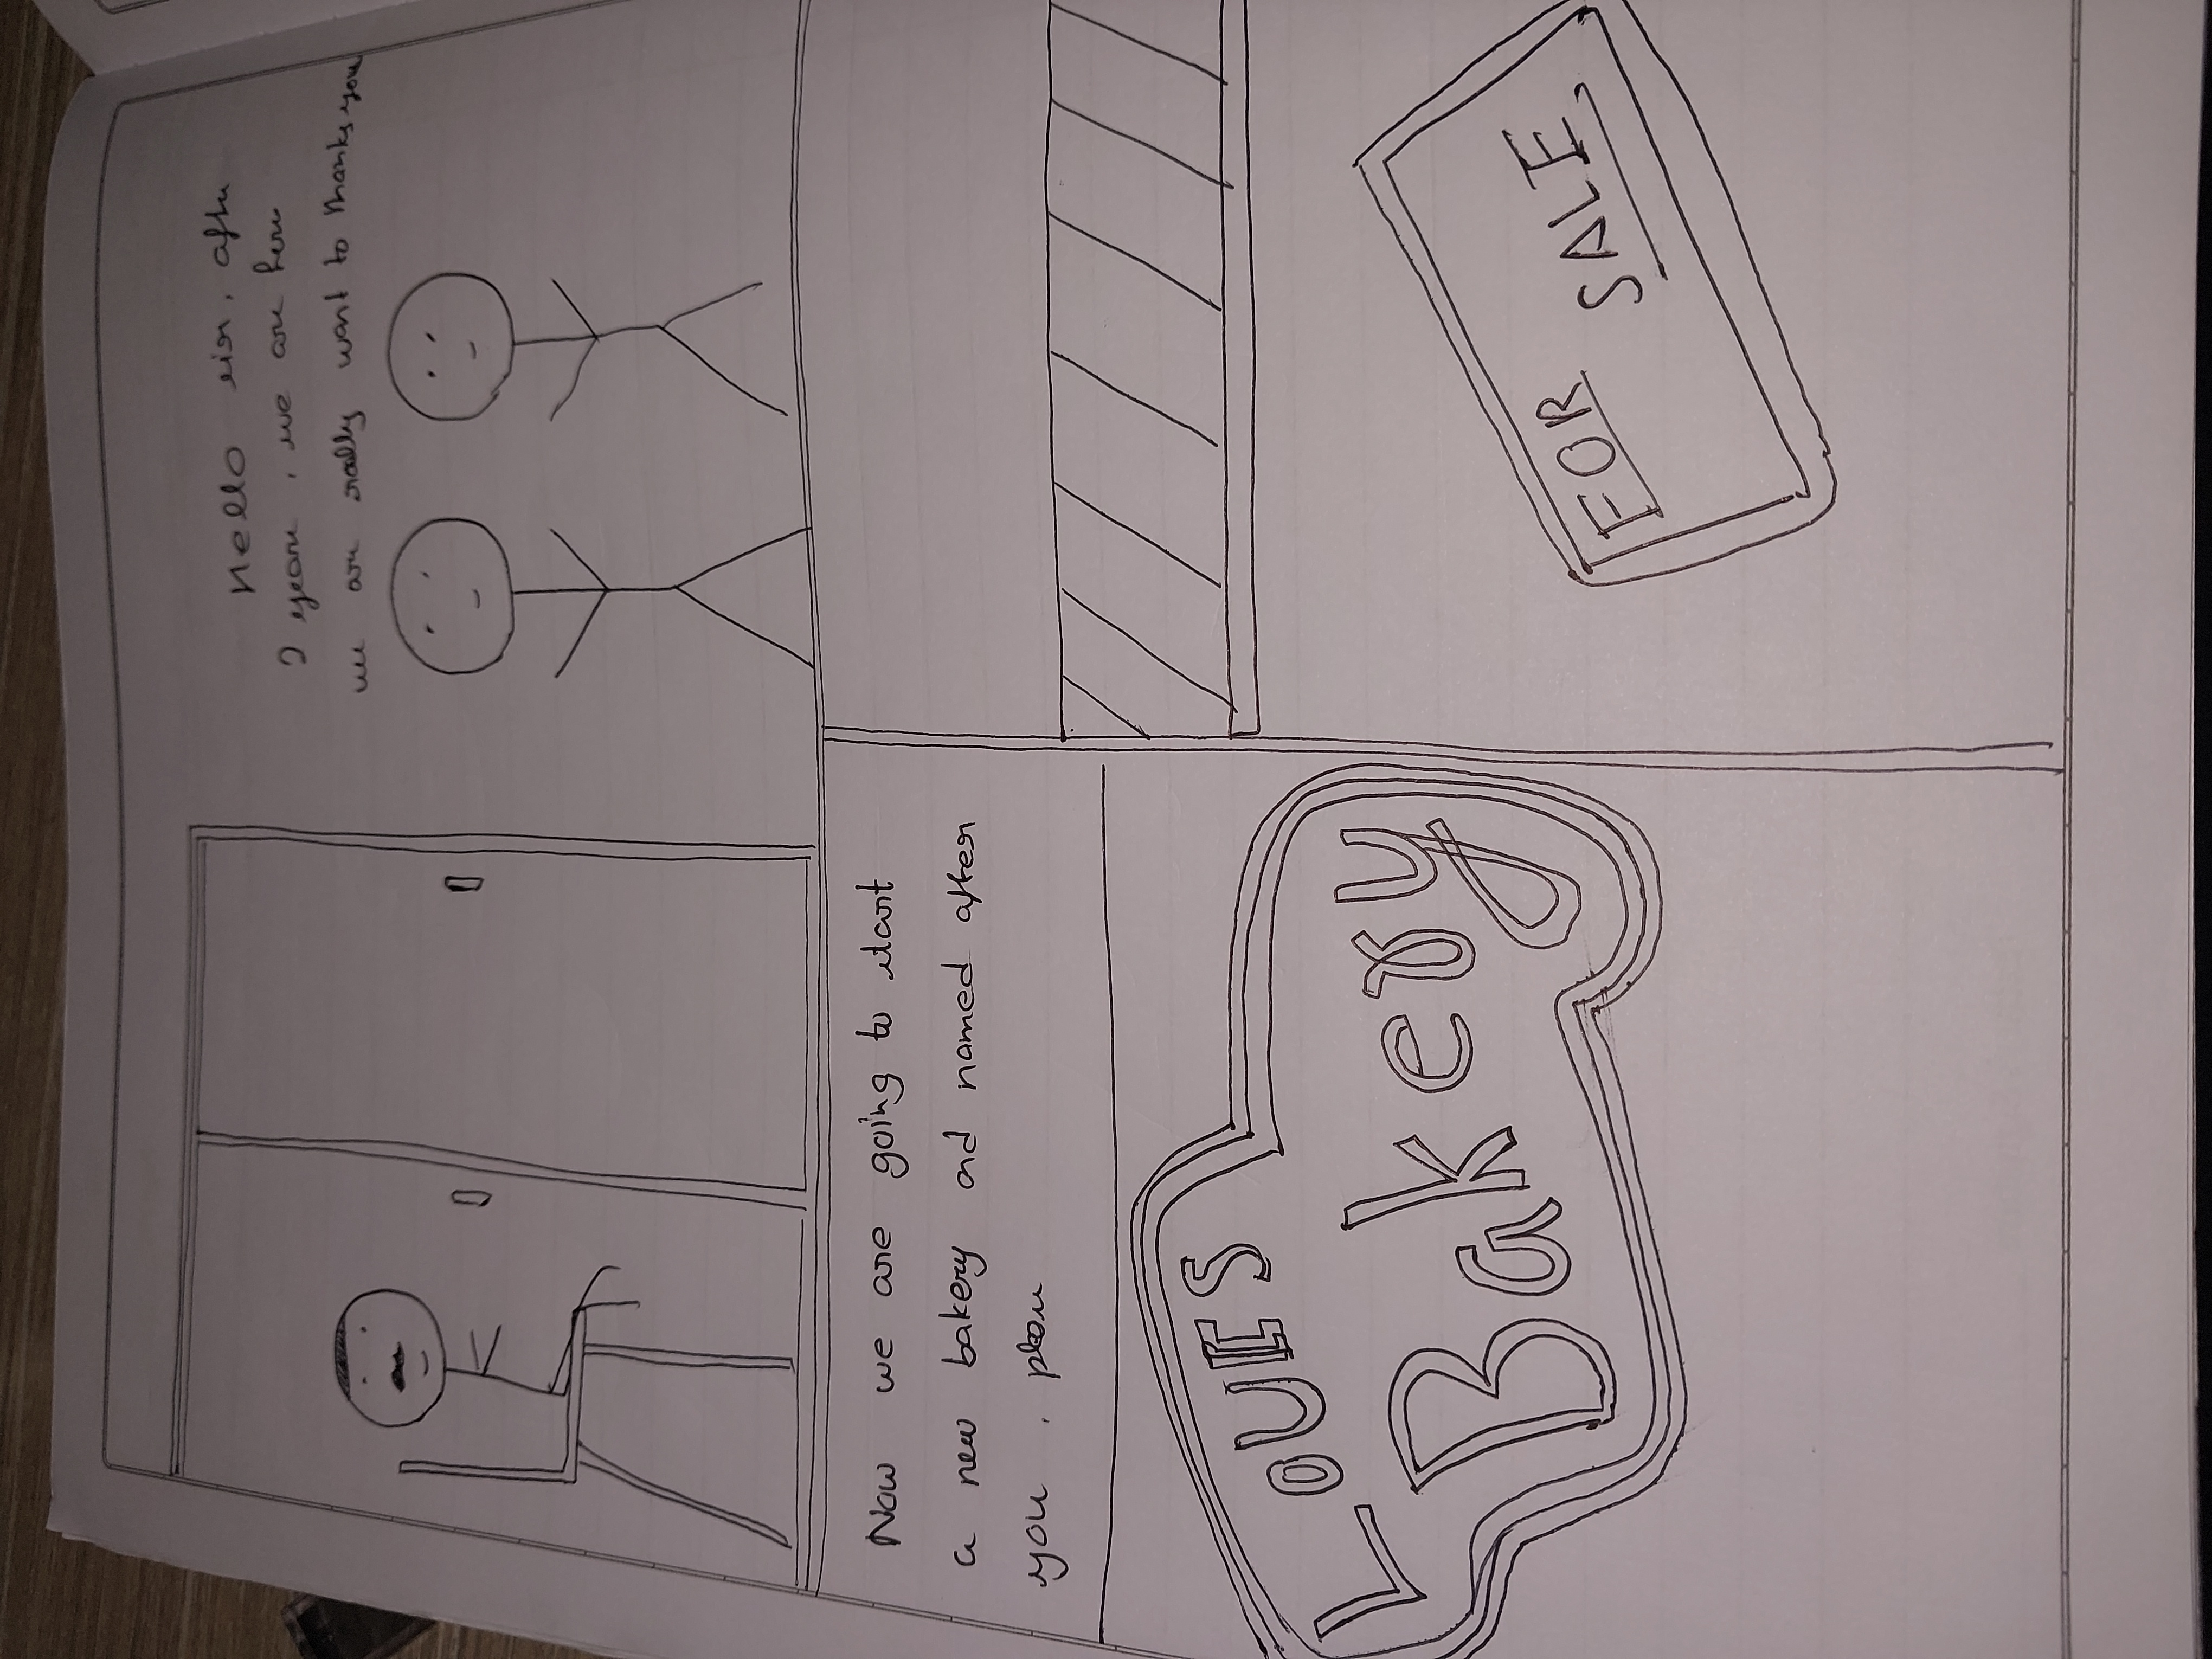 Hello sir, after
years, we are here
we are really want to thanks you
Now we are going to start
a new bakery and named after
you,
LOUIS
Bakery
FOR SALE